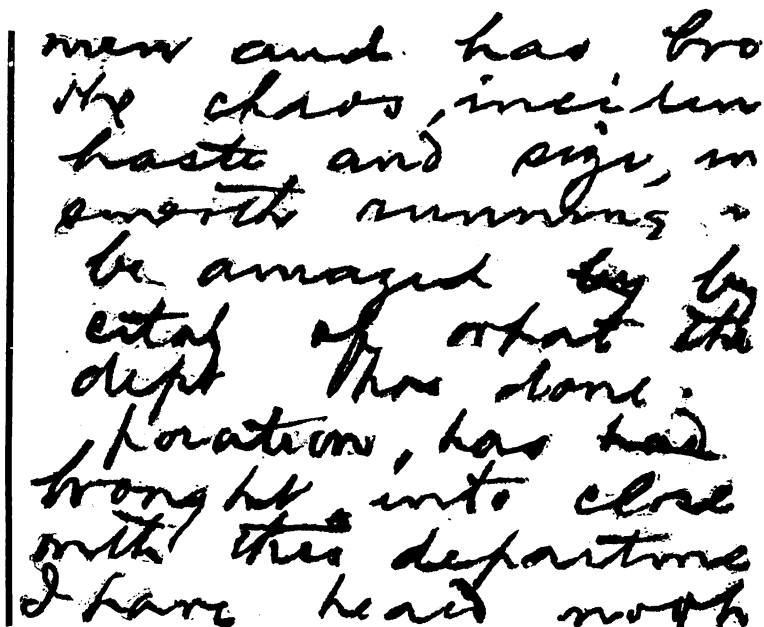 men and has bro
the chaos, inciden
haste and size, in
smooth running
be amazed by by
cital of what the
dept has done.
poration, has had
brought into close
with this departme
I have heard